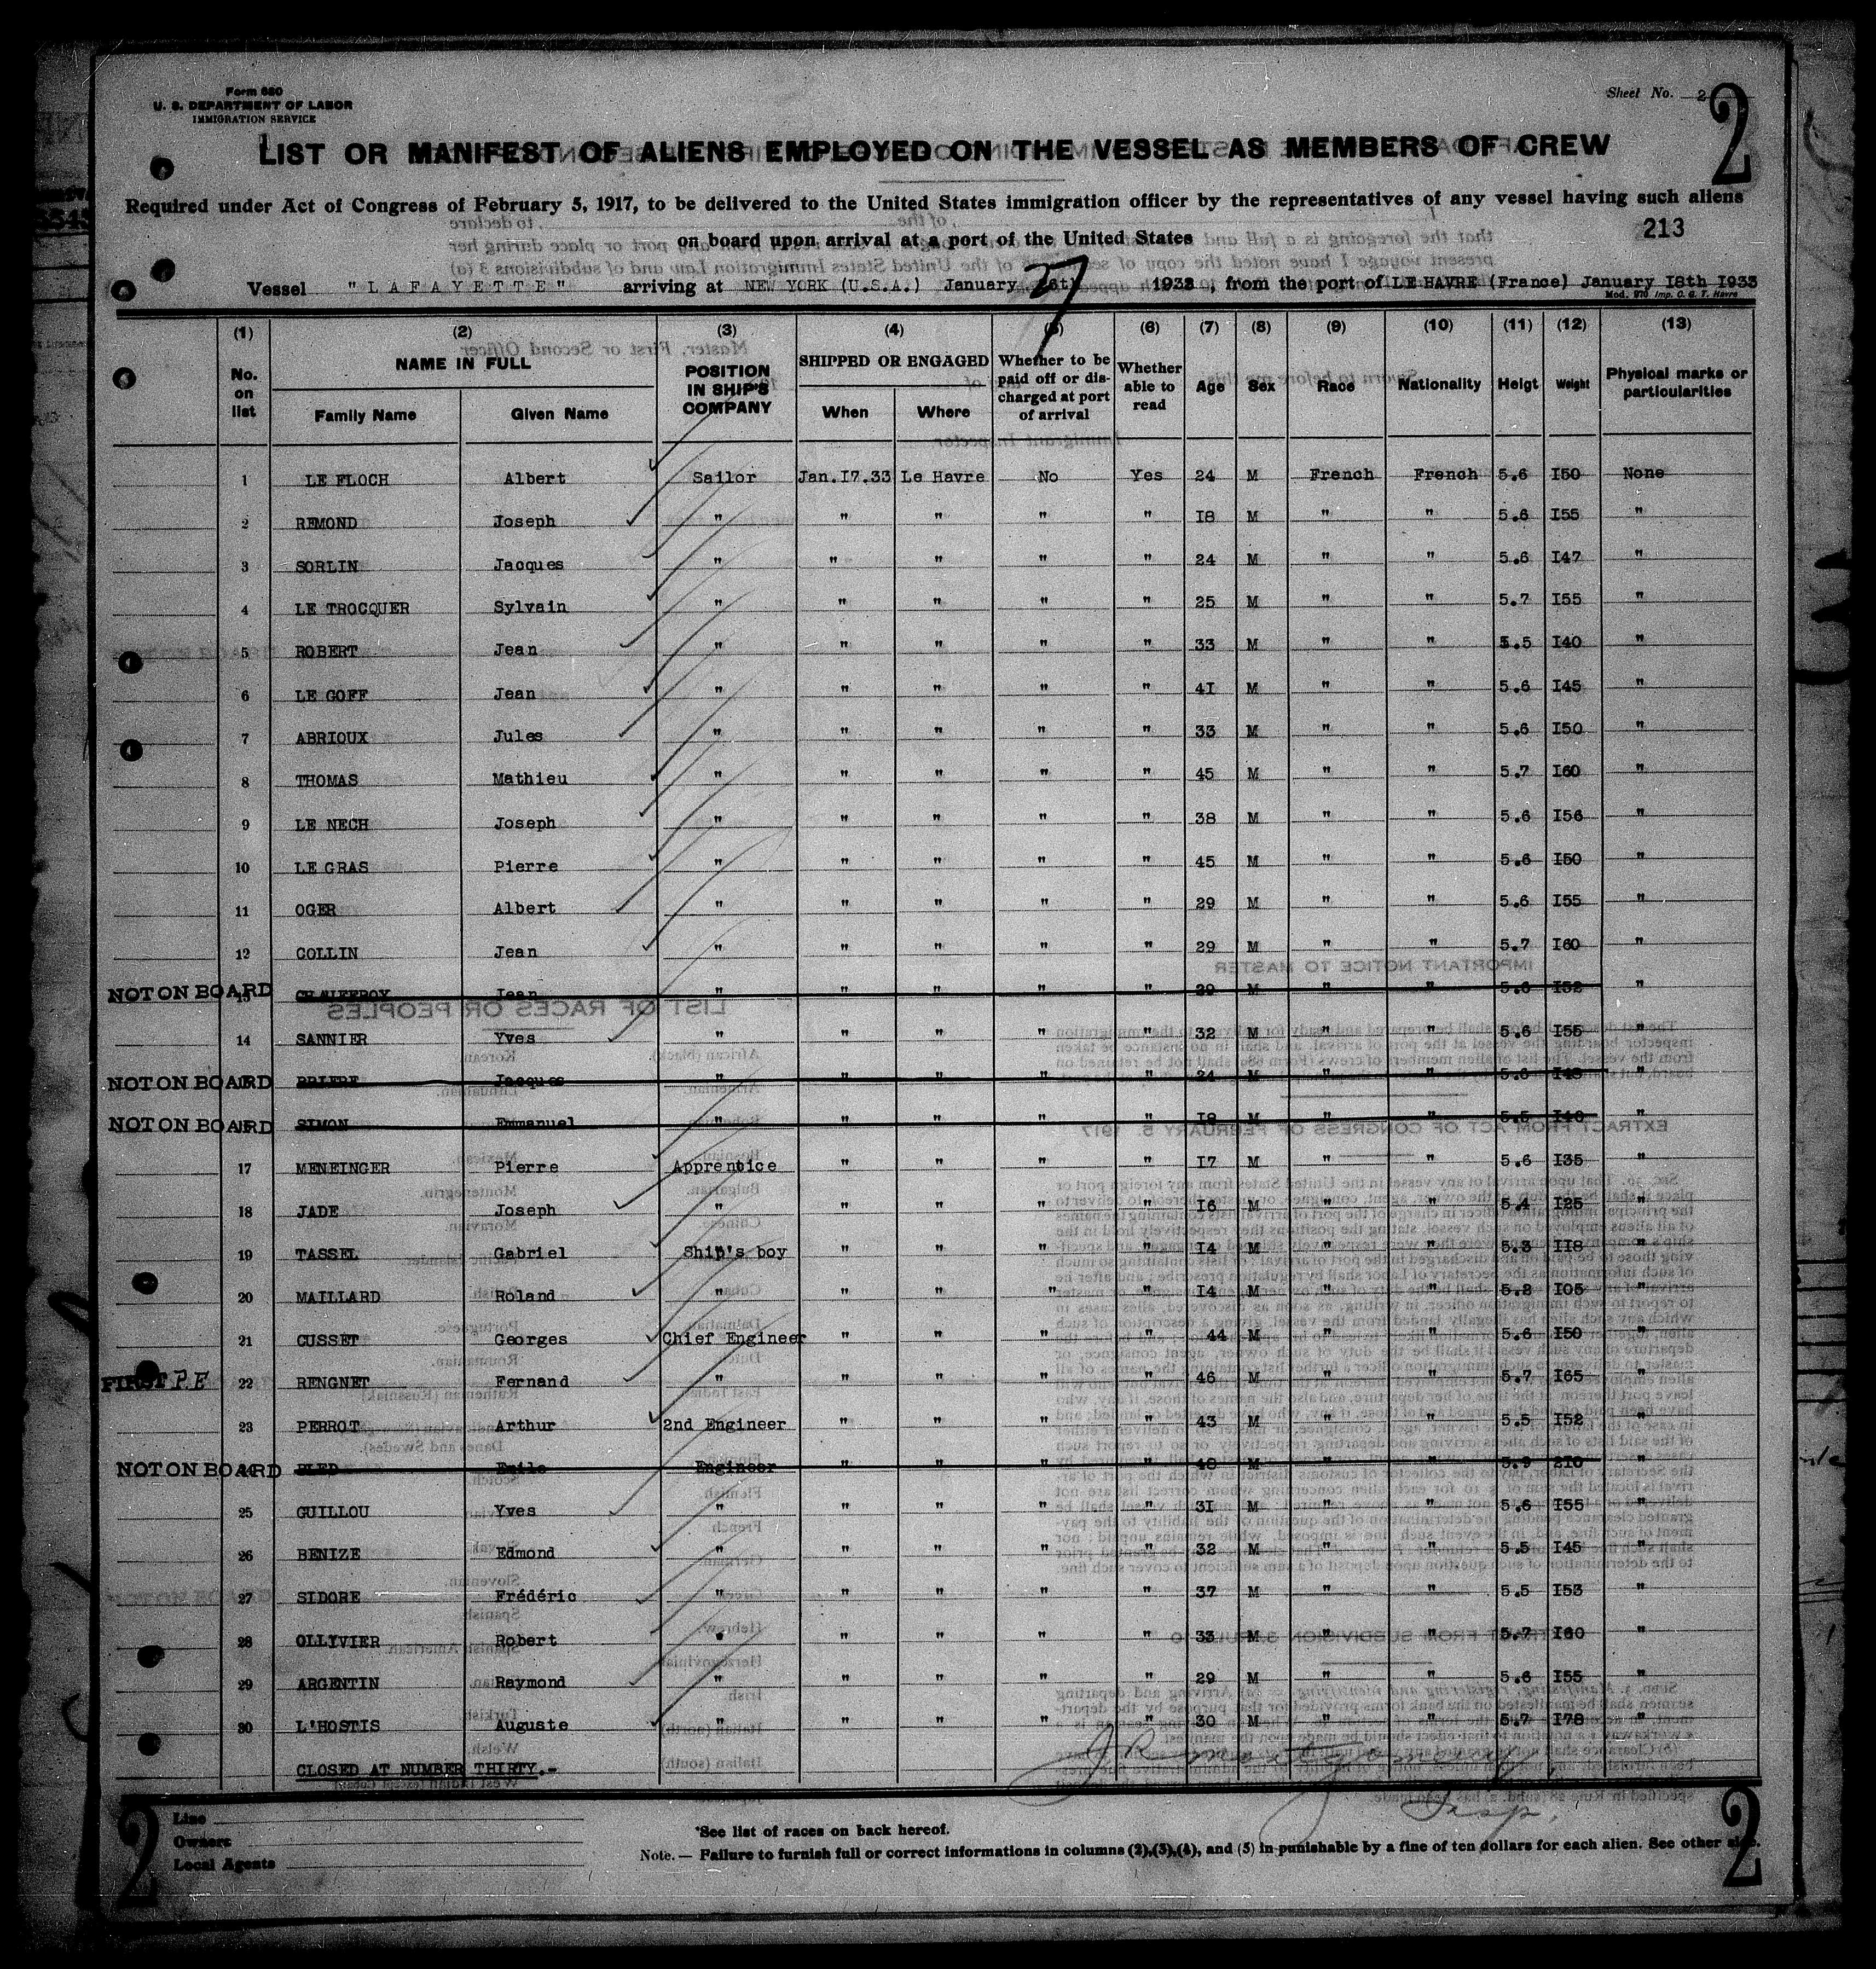 Form 680
U. S. DEPARTMENT OF LABOR
IMMIGRATION SERVICE
Sheet No. 2
2
LIST OR MANIFEST OF ALIENS EMPLOYED ON THE VESSEL AS MEMBERS OF CREW
Required under Act of Congress of February 5, 1917, to be delivered to the United States immigration officer by the representatives of any vessel having such aliens
on board upon arrival at a port of the United States
213
Vessel "LAFAYETTE" arriving at NEW YORK (U.S.A.) January 27 1933, from the port of LE HAVRE (France) January I8th I933
Mod. 970 Imp. C. G. T. Havre
(1) (2) (3) (4) (5) (6) (7) (8) (9) (10) (11) (12) (13)
No. on list NAME IN FULL Family Name Given Name POSITION IN SHIP'S COMPANY SHIPPED OR ENGAGED When Where Whether to be paid off or discharged at port of arrival Whether able to read Age Sex Race Nationality Heigt Weight Physical marks or particularities
1 LE FLOCH Albert Sailor Jan.I7.33 Le Havre No Yes 24 M French French 5.6 I50 None
2 REMOND Joseph " " " " " I8 M " " 5.6 I55 "
3 SORLIN Jacques " " " " " 24 M " " 5.6 I47 "
4 LE TROCQUER Sylvain " " " " " 25 M " " 5.7 I55 "
5 ROBERT Jean " " " " " 33 M " " 5.5 I40 "
6 LE GOFF Jean " " " " " 4I M " " 5.6 I45 "
7 ABRIOUX Jules " " " " " 33 M " " 5.6 I50 "
8 THOMAS Mathieu " " " " " 45 M " " 5.7 I60 "
9 LE NECH Joseph " " " " " 38 M " " 5.6 I56 "
10 LE GRAS Pierre " " " " " 45 M " " 5.6 I50 "
11 OGER Albert " " " " " 29 M " " 5.6 I55 "
12 COLLIN Jean " " " " " 29 M " " 5.7 I60 "
NOT ON BOARD 13 Jean " " " " " 29 M " " 5.6 I52 "
14 SANNIER Yves " " " " " 32 M " " 5.6 I55 "
NOT ON BOARD BRIERE Jacques " " " " " 24 M " " 5.6 I48 "
NOT ON BOARD SIMON Emmanuel " " " " " I8 M " " 5.5 I40 "
17 MENEINGER Pierre Apprentice " " " " I7 M " " 5.6 I35 "
18 JADE Joseph " " " " " I6 M " " 5.4 I25 "
19 TASSEL Gabriel Ship's boy " " " " I4 M " " 5.3 II8 "
20 MAILLARD Roland " " " " " I4 M " " 5.2 I05 "
21 CUSSET Georges Chief Engineer " " " " 44 M " " 5.6 I50 "
FIRST P.E 22 RENGNET Fernand " " " " " 46 M " " 5.7 I65 "
23 PERROT Arthur 2nd Engineer " " " " 43 M " " 5.5 I52 "
NOT ON BOARD 24 BLED Emile Engineer " " " " 40 M " " 5.9 2I0 "
25 GUILLOU Yves " " " " " 3I M " " 5.6 I55 "
26 BENIZE Edmond " " " " " 32 M " " 5.5 I45 "
27 SIDORE Frédéric " " " " " 37 M " " 5.5 I53 "
28 OLLYVIER Robert " " " " " 33 M " " 5.7 I60 "
29 ARGENTIN Raymond " " " " " 29 M " " 5.6 I55 "
30 L'HOSTIS Auguste " " " " " 30 M " " 5.7 I78 "
CLOSED AT NUMBER THIRTY.-
JR Montgomery
Insp.
2
Line
Owners
Local Agents
*See list of races on back hereof.
Note. — Failure to furnish full or correct informations in columns (2),(3),(4), and (5) in punishable by a fine of ten dollars for each alien. See other side.
2